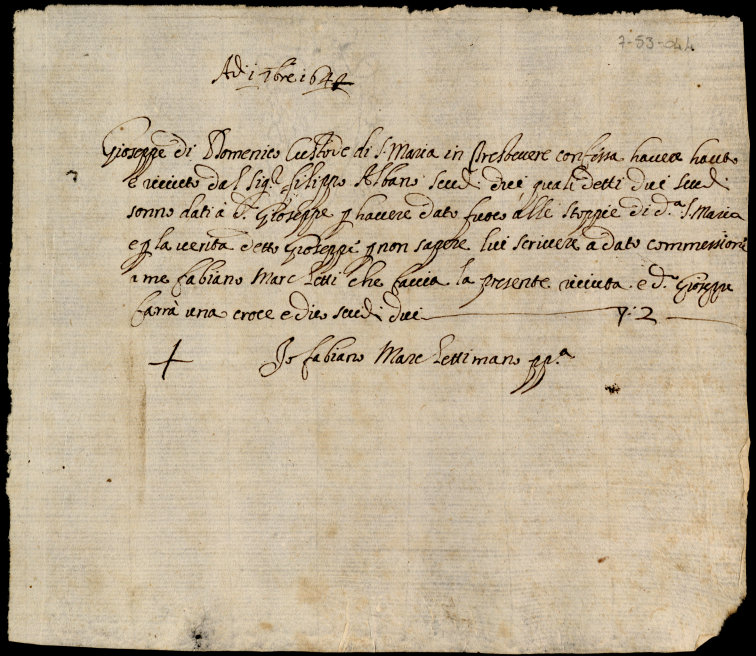 7-53-044
Adi 1 7bre 1642
Gioseppe di Domenico Custode di S. Maria in Presbevere confessa havere hauto
e riceuto dal Sig.r filippo Albano scudi dui quali detti dui scudi
sonno dati a d.o Gioseppe p havere dato fuoco alle stoppie di d.a S. Maria
e p la verita detto Gioseppe p non sapere lui scrivere a dato commessione
a me fabiano Marc letti che faccia la presente riceuta e d.o Gioseppe
farrà una croce e dico scudi dui ——— 2 —
+ Io fabiano Marc letti mano pp.a